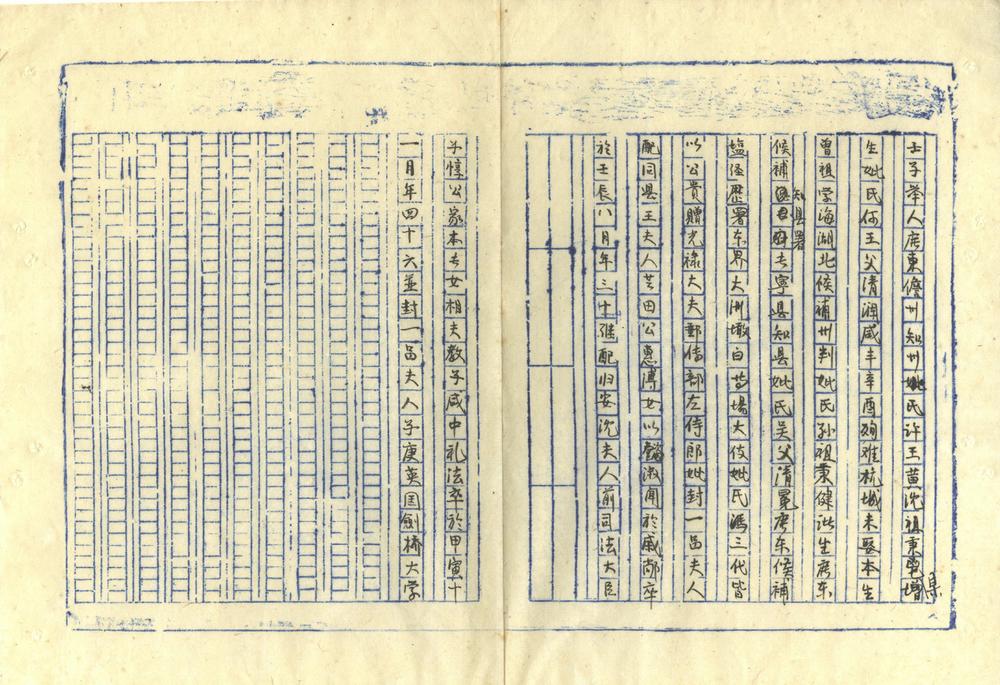 壬子举人广东儋州知州妣氏许王黄沈祖秉
生妣氏何王父清润咸丰辛酉殉难杭城未娶本生
曾祖学海湖北候补州判妣氏孙祖秉健汕生广东
候补知县署长宁县知县妣氏吴父清冕广东候补
塩经歴署东界大洲墩白芳場大使妣氏馮三代皆
以公貴贈光禄大夫郵传部左侍郎妣封一品夫人
配同县王夫人芸田公惠溥女以懿淑闻於戚鄰卒
於壬辰八月年三十继配归安沈夫人前司法大臣
子惇公家本女相夫教子咸中礼法卒於甲寅十
一月年四十六並封一品夫人子庚英国劍橋大学